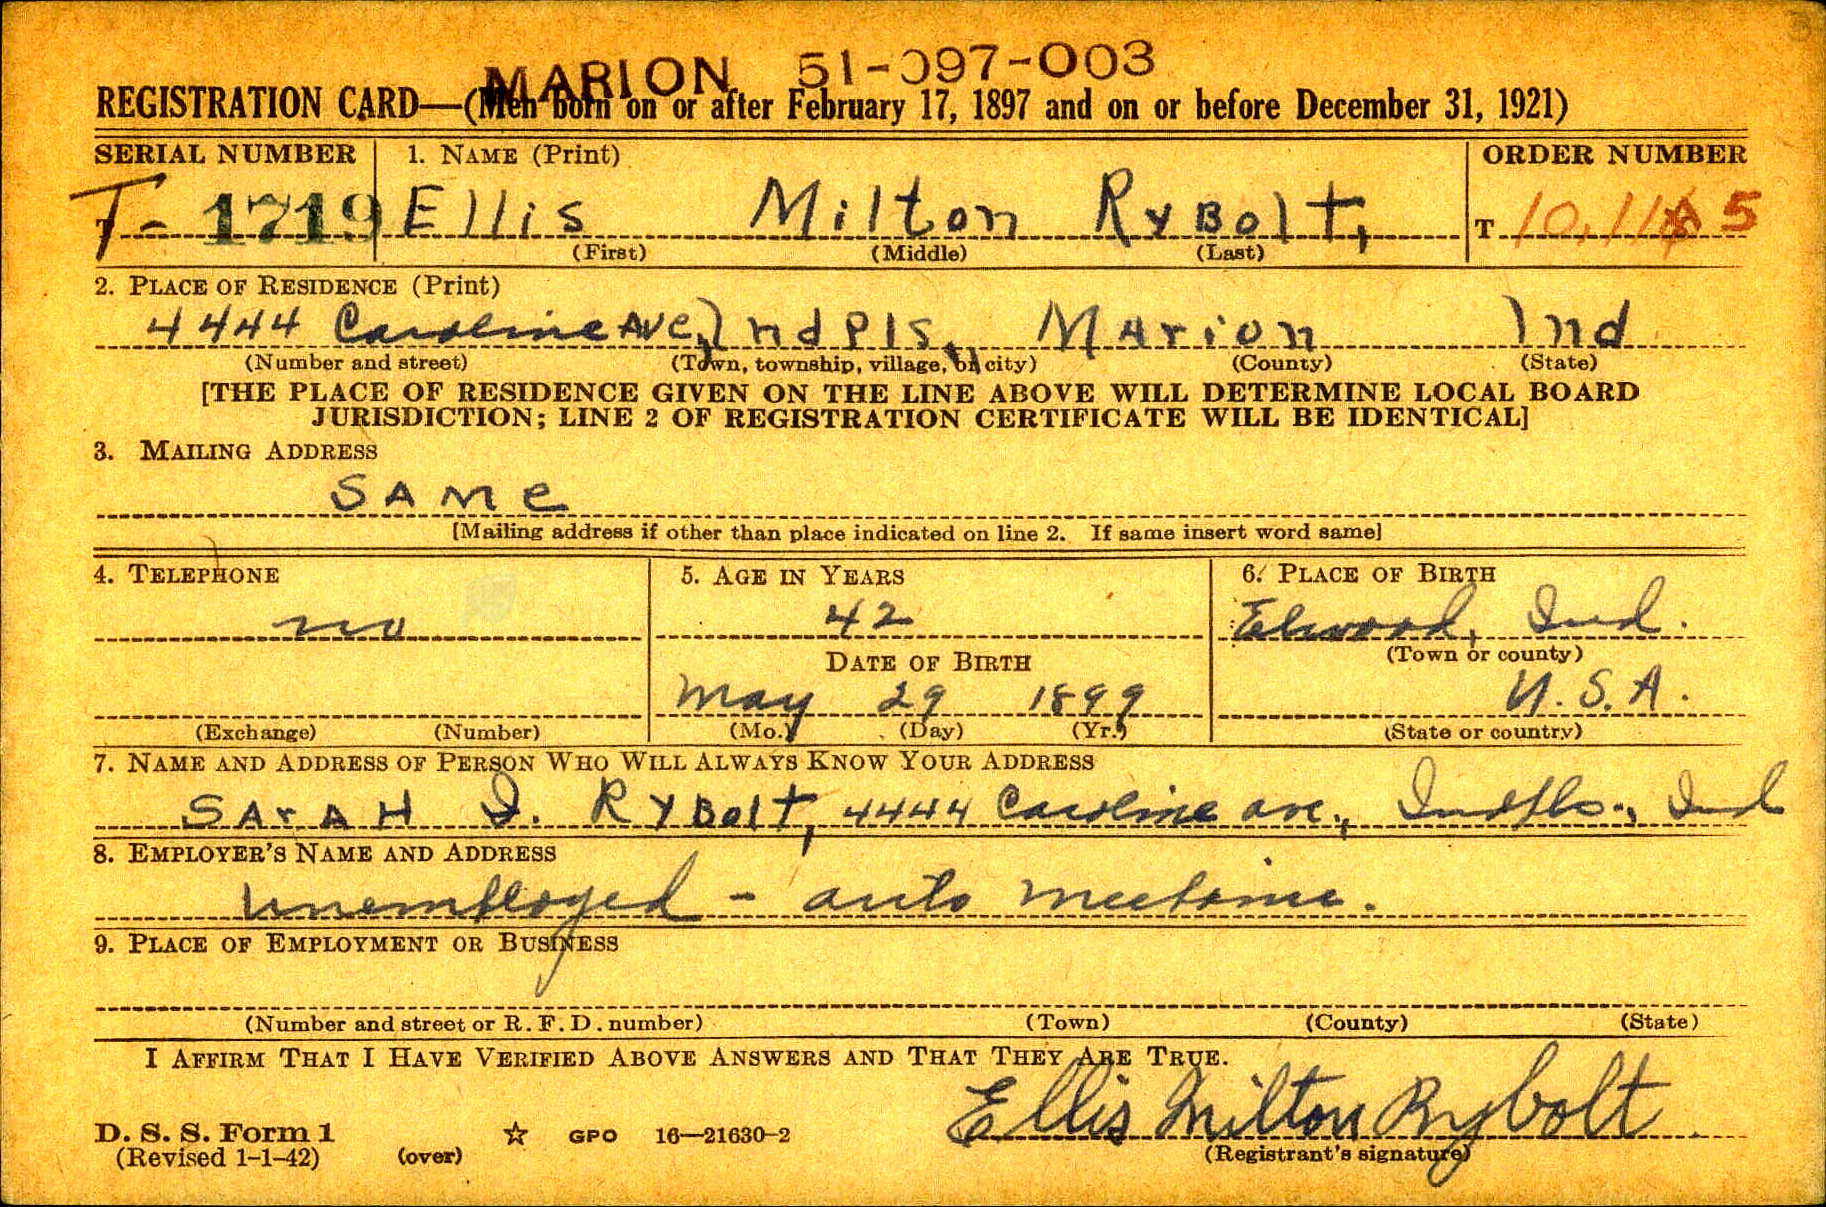 MARION 51-097-003
REGISTRATION CARD—(Men born on or after February 17, 1897 and on or before December 31, 1921)
SERIAL NUMBER 1. NAME (Print) ORDER NUMBER
T- 1719 Ellis Milton Rybolt, T 10,115
(First) (Middle) (Last)
2. PLACE OF RESIDENCE (Print)
4444 Caroline Ave, Indpls, Marion Ind
(Number and street) (Town, township, village, or city) (County) (State)
[THE PLACE OF RESIDENCE GIVEN ON THE LINE ABOVE WILL DETERMINE LOCAL BOARD
JURISDICTION; LINE 2 OF REGISTRATION CERTIFICATE WILL BE IDENTICAL]
3. MAILING ADDRESS
SAMe
[Mailing address if other than place indicated on line 2. If same insert word same]
4. TELEPHONE 5. AGE IN YEARS 6. PLACE OF BIRTH
no 42 Elwood, Ind.
DATE OF BIRTH (Town or county)
May 29 1899 U.S.A.
(Exchange) (Number) (Mo.) (Day) (Yr.) (State or country)
7. NAME AND ADDRESS OF PERSON WHO WILL ALWAYS KNOW YOUR ADDRESS
SArAH I. RYBolt, 4444 Caroline ave., Indpls., Ind
8. EMPLOYER'S NAME AND ADDRESS
Unemployed - auto
9. PLACE OF EMPLOYMENT OR BUSINESS
(Number and street or R. F. D. number) (Town) (County) (State)
I AFFIRM THAT I HAVE VERIFIED ABOVE ANSWERS AND THAT THEY ARE TRUE.
Ellis Milton Rybolt
D. S. S. Form 1
(Revised 1-1-42) (over) ☆ GPO 16—21630-2 (Registrant's signature)